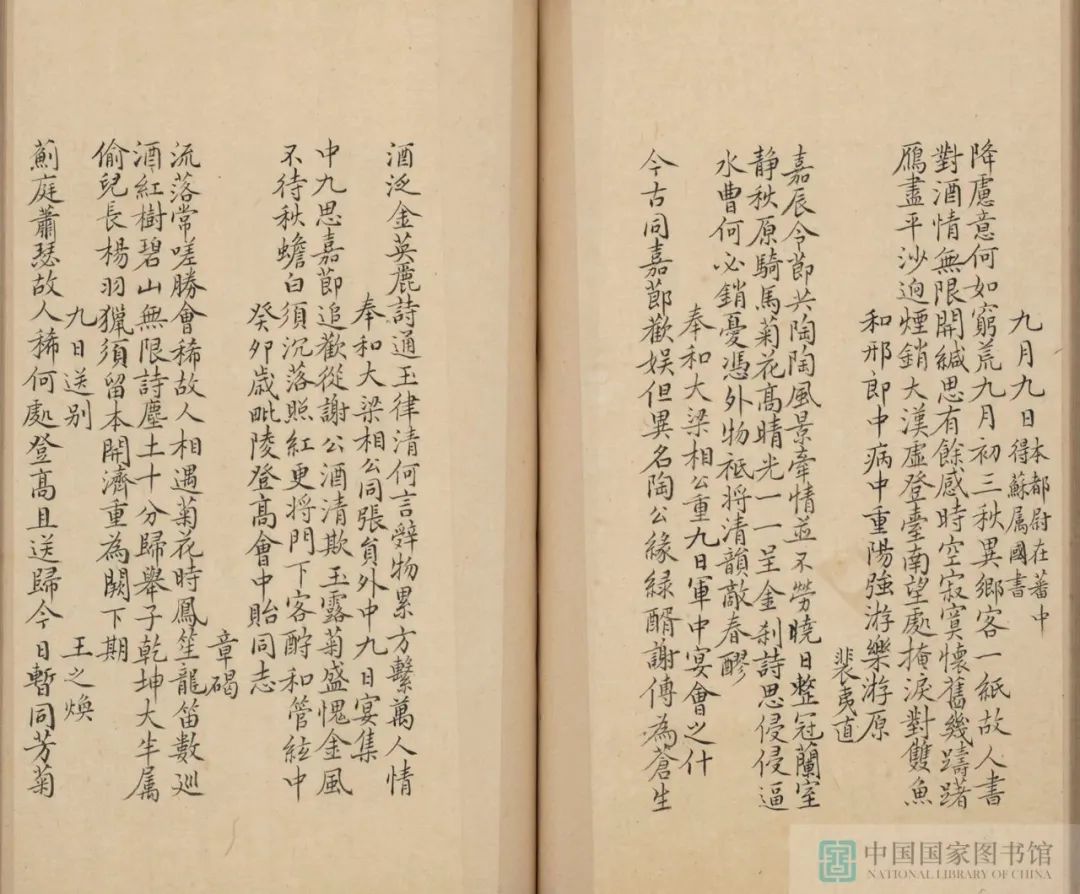 九月九日 本都尉在蕃中
得蘇属國書
降慮意何如窮荒九月初三秋異鄉客一紙故人書
對酒情無限開緘思有餘感時空寂寞懷舊幾躊躇
鴈盡平沙迥煙銷大漢虛登臺南望處掩淚對雙魚
和邢郎中病中重陽強游樂游原
裴夷直
嘉辰令節共陶陶風景牽情並不勞曉日整冠蘭室
静秋原騎馬菊花高晴光一一呈金刹詩思侵侵逼
水曹何必銷憂憑外物祗將清韻敵春醪
奉和大梁相公重九日軍中宴會之什
今古同嘉節歡娱但異名陶公緣緑醑謝傅為蒼生
酒泛金英麗詩通玉律清何言辭物累方繫萬人情
奉和大梁相公同張員外中九日宴集
中九思嘉節追歡從謝公酒清欺玉露菊盛愧金風
不待秋蟾白須沉落照紅更將門下客酧和管絃中
癸卯歳毗陵登高會中貽同志
章碣
流落常嗟勝會稀故人相遇菊花時鳳笙龍笛數巡
酒紅樹碧山無限詩塵土十分歸舉子乾坤大半属
偷兒長楊羽獵須留本開濟重為闕下期
九日送别
王之煥
薊庭蕭瑟故人稀何處登高且送歸今日暫同芳菊
中国国家图书馆
NATIONAL LIBRARY OF CHINA